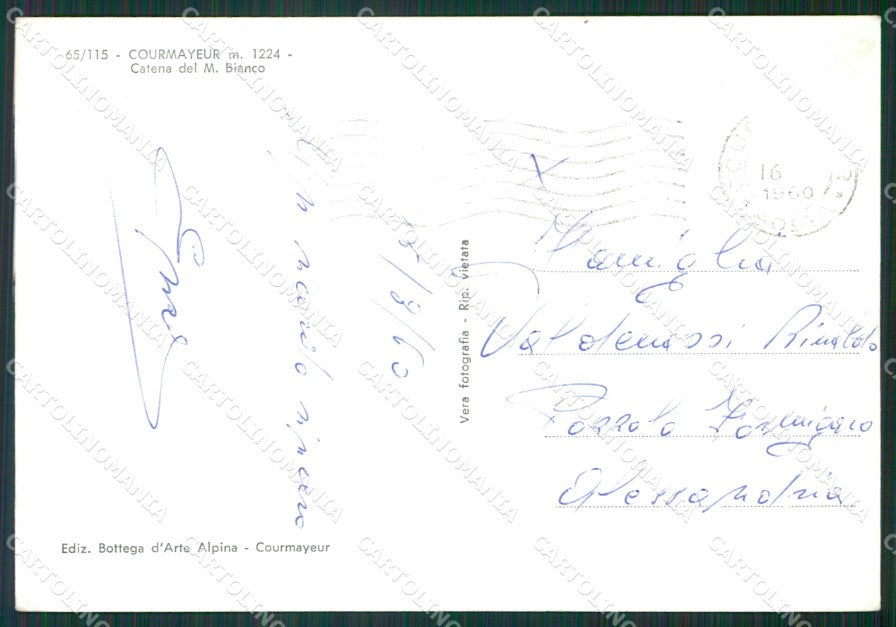 65/115 - COURMAYEUR m. 1224 -
Catena del M. Bianco
Un ricordo sincero
15/8/60
Vera fotografia - Rip. vietata
16
1960
X
Famiglia
Valdenassi Rinaldo
Pozzolo Formigaro
Alessandria
Ediz. Bottega d'Arte Alpina - Courmayeur
CARTOLINOMANIA